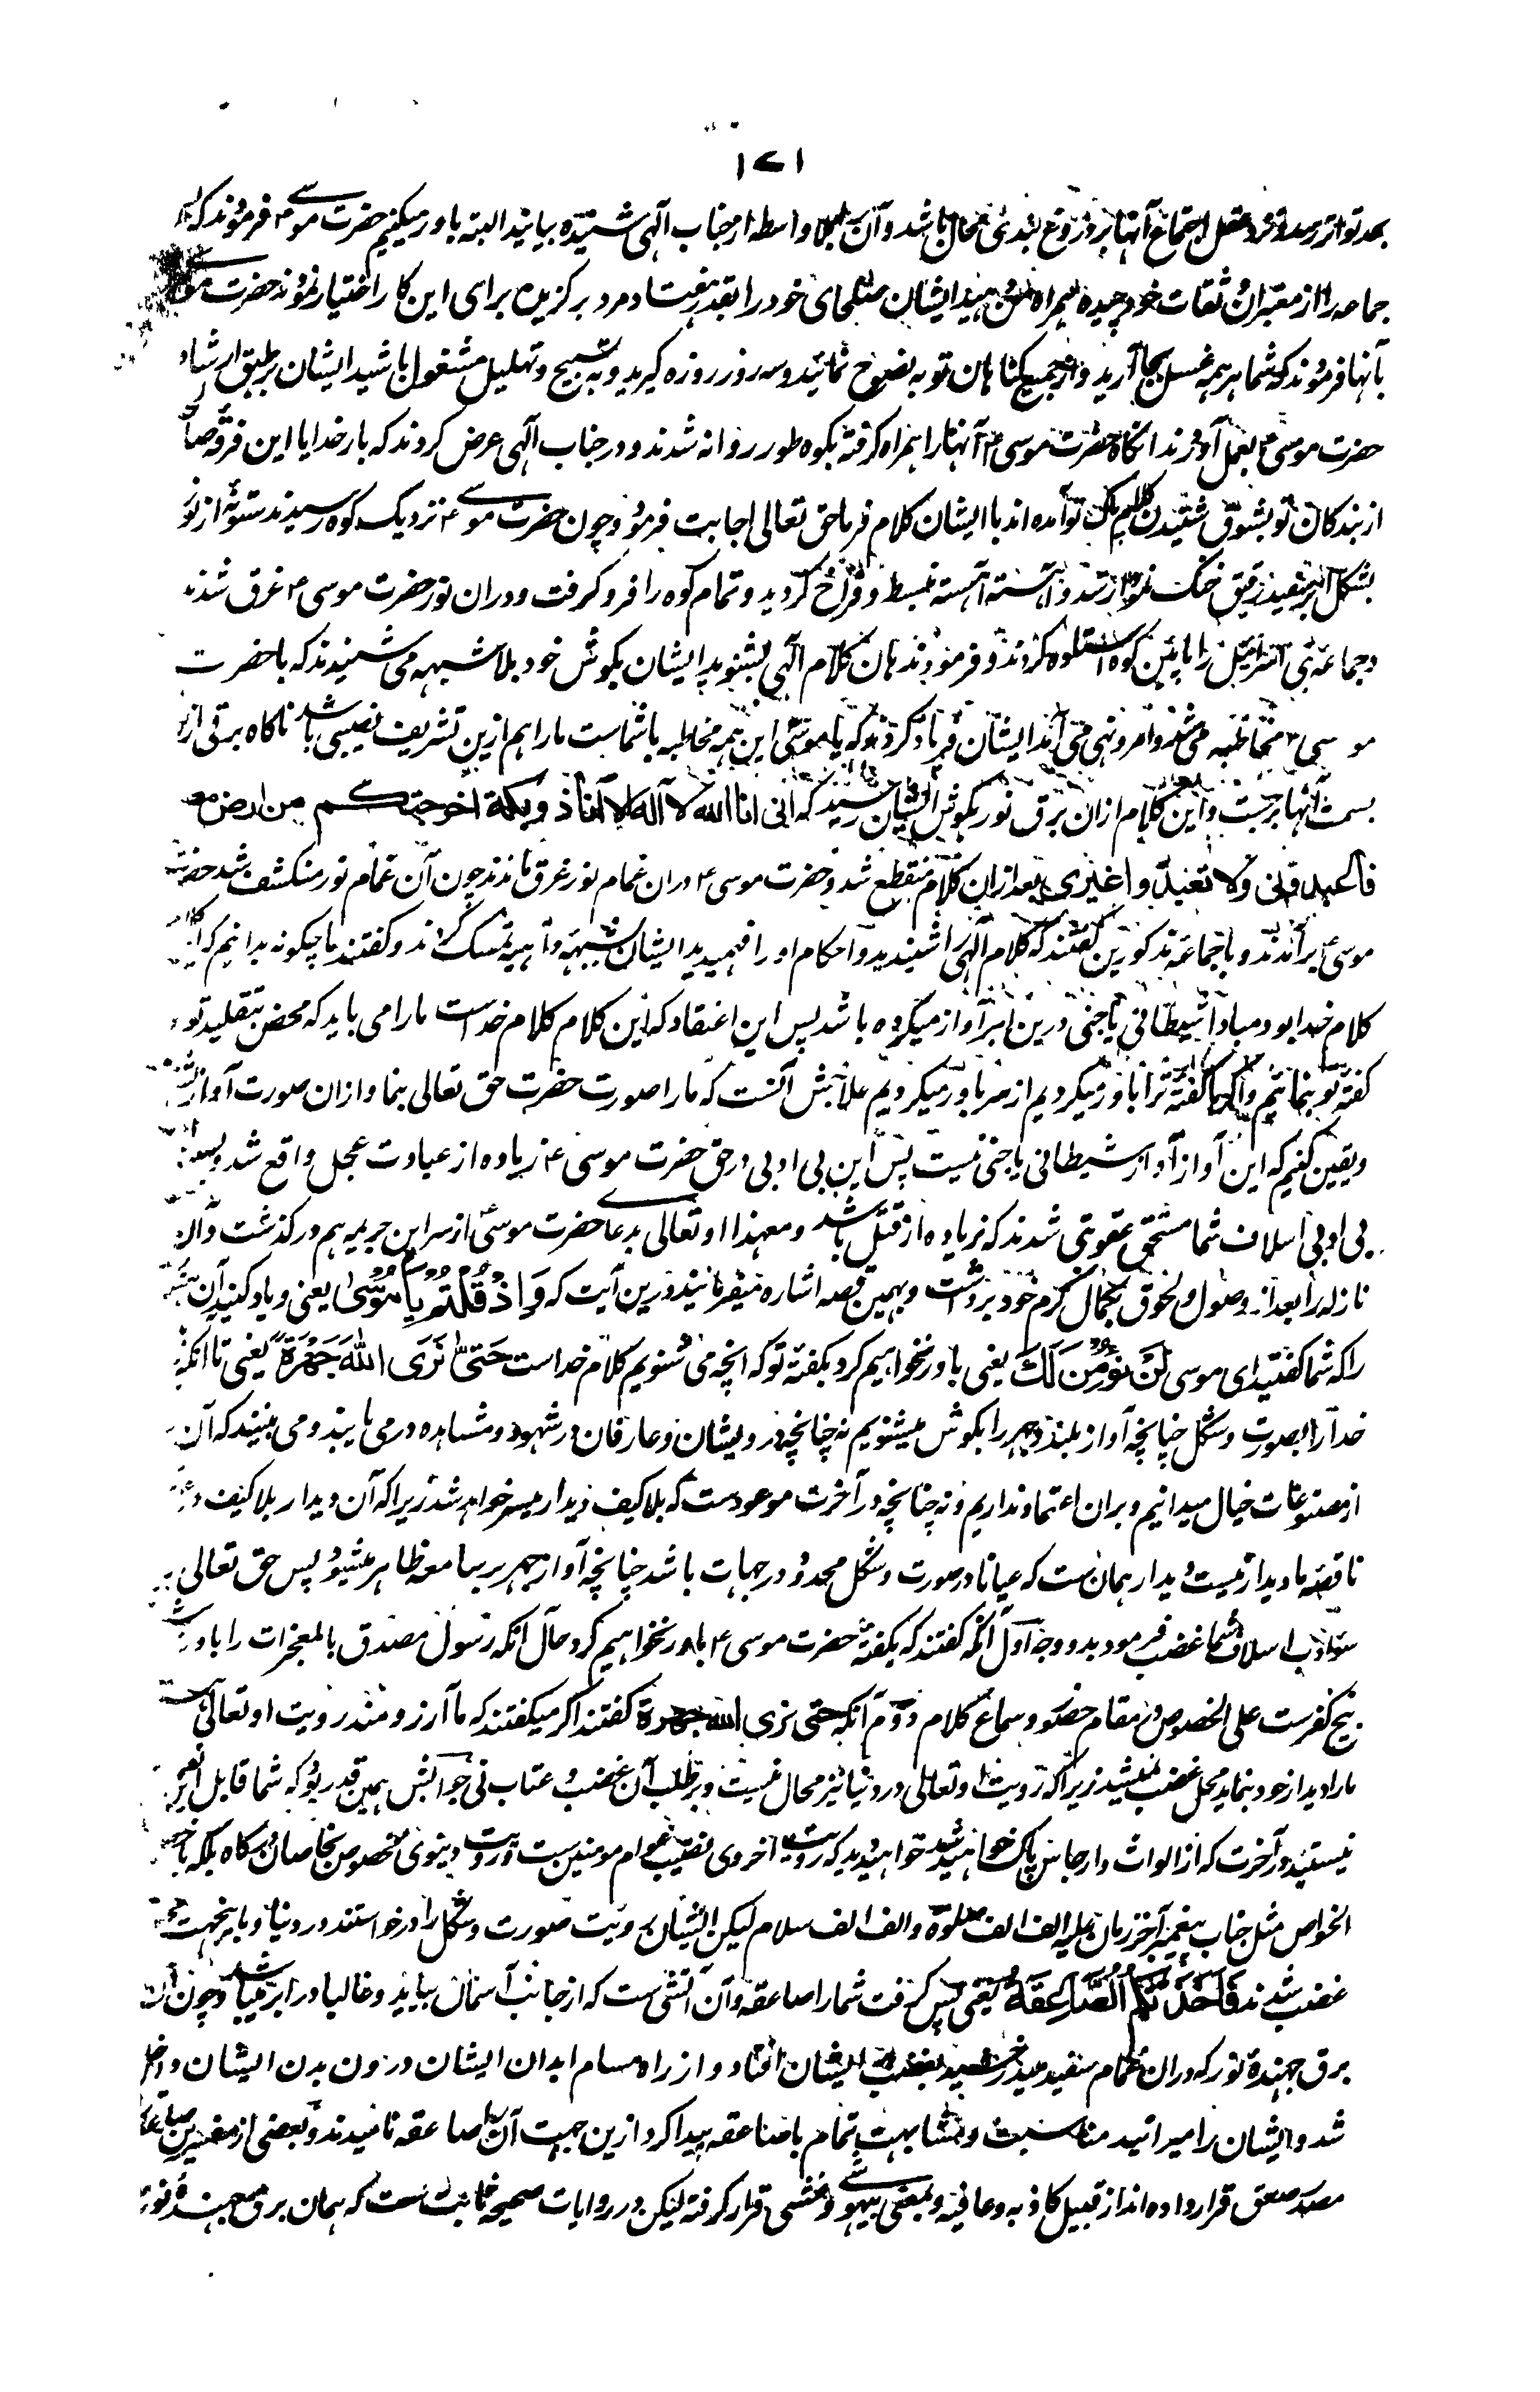 ۱۷۱
بحد تواتر رسد و نزد عقل اجتماع آنها بر دروغ بندی محال باشد و آن بلا واسطه از جناب الهی شنیده بیایند البته باور میکنیم حضرت موسی ع فرمودند که
جماعه را از معتبران و ثقات خود چیده همراه من دهید ایشان صلحای خود را بقدر هفتاد مرد برگزیده برای این کار اختیار نمودند حضرت موسی
بآنها فرمودند که شما هر همه غسل بجا آرید و از جمیع گناهان توبه نصوح نمائید و سه روز روزه گیرید و به تسبیح و تهلیل مشغول باشید ایشان بر طبق ارشاد
حضرت موسی ع بعمل آوردند آنگاه حضرت موسی ع آنها را همراه گرفته بکوه طور روانه شدند و در جناب الهی عرض کردند که بار خدایا این فرقه
از بندگان تو بشوق شنیدن کلام پاک تو آمده اند با ایشان کلام فرما حق تعالی اجابت فرمود و چون حضرت موسی ع نزدیک کوه رسیدند ستونی از نور
بشکل ابر سفید رقیق خنک نمودار شد و آهسته آهسته منبسط و فراخ گردید و تمام کوه را فرو گرفت و در ان نور حضرت موسی ع غرق شدند
و جماعه بنی اسرائیل را پائین کوه استاده کردند و فرمودند هان کلام الهی بشنوید ایشان بگوش خود بلا شبهه می شنیدند که با حضرت
موسی ع مخاطبه می شود و امر و نهی می آید ایشان فریاد کردند که یا موسی این همه مخاطبه با شماست ما را هم ازین تشریف نصیبی باشد ناگاه برقی از
بسمت آنها برجست و این کلام از ان برق نور بگوش ایشان رسید که انی انا الله لا اله الا انا ذو بکة اخرجتکم من ارض مصر
فاعبدونی ولا تعبدوا غیری بعد ازان کلام منقطع شد و حضرت موسی ع در ان غمام نور غرق ماندند چون آن غمام نور منکشف شد حضرت
موسی ع برآمدند و با جماعه مذکورین گفتند که کلام الهی را شنیدید و احکام او را فهمیدید ایشان بشبهه واهیه تمسک کردند و گفتند ما چگونه بدانیم که این
کلام خدا بود مبادا شیطانی یا جنی درین ابر آواز میکرده باشد پس این اعتقاد که این کلام کلام خداست ما را می باید که محض بتقلید تو و
گفته تو بنمائیم و اگر ما گفته ترا باور میکردیم از سر باور میکردیم علاجش آنست که ما را صورت حضرت حق تعالی بنما و ازان صورت آواز
و یقین کنیم که این آواز آواز شیطانی یا جنی نیست پس این بی ادبی در حق حضرت موسی ع زیاده از عبادت عجل واقع شد و بسبب
بی ادبی اسلاف شما مستحق عقوبتی شدند که زیاده از قتل باشد و معهذا او تعالی بدعای حضرت موسی از سر این جریمه هم در گذشت و
نازله را بعد از وصول و لحوق بکمال کرم خود برداشت و بهمین قصه اشاره میفرمایند درین آیت که وَاِذْ قُلْتُمْ یَا مُوْسٰی یعنی و یاد کنید آن
را که شما گفتید ای موسی لَنْ نُؤْمِنَ لَکَ یعنی باور نخواهیم کرد بگفته تو که آنچه می شنویم کلام خداست حَتّٰی نَرَی اللّٰهَ جَهْرَةً یعنی تا آنکه
خدا را بصورت و شکل چنانچه آواز بلند و جهر را بگوش میشنویم نه چنانچه درویشان و عارفان در شهود و مشاهده در می یابند و می بینند که آن
از مصنوعات خیال میدانیم و بران اعتماد نداریم و نه چنانچه در آخرت موعودست که بلا کیف دیدار میسر خواهد شد زیرا که آن دیدار بلا کیف
ناقصه ما دیدار نیست دیدار همان ست که عیانا در صورت و شکل محدود در جهات باشد چنانچه آواز جهر بر سامعه ظاهر میشود پس حق تعالی
اسلاف شما غضب فرمود بدو وجه اول آنکه گفتند که بگفته حضرت موسی ع باور نخواهیم کرد حال آنکه رسول مصدق بالمعجزات را باور
کفرست علی الخصوص در مقام حضور و سماع کلام دوم آنکه حتی نری الله جهرة گفتند اگر میگفتند که ما آرزومند رویت او تعالی
ما را دیدار خود بنماید محل غضب نمیشد زیرا که رویت او تعالی در دنیا نیز محال نیست و بر طلب آن غضب و عتاب نی جوابش همین قدر بود که شما قابل
نیستید در آخرت که از الواث و ارجاس پاک خواهید شد خواهید دید که رویت اخروی نصیب عوام مومنین ست و رویت دنیوی مخصوص بخاصان گاه بلکه
الخواص مثل جناب پیغمبر آخر زمان علیه الف الف صلوة و الف الف سلام لیکن ایشان رویت صورت و شکل را درخواستند در دنیا و باین جهت
غضب شدند فَاَخَذَتْکُمُ الصَّاعِقَةُ یعنی پس گرفت شما را صاعقه و آن آتشی ست که از جانب آسمان بیاید و غالبا در ابر میباشد و چون
برق جهنده نور که در ان غمام سفید میدرخشید بغضب ایشان افتاد و از راه مسام ابدان ایشان درون بدن ایشان داخل
شد و ایشان را میرانید مناسبت و مشابهت تمام با صاعقه پیدا کرد ازین جهت آن را صاعقه نامیدند و بعضی از مفسرین صاعقه
مصدر صعق قرار داده اند از قبیل کاذبه و عافیه و بمعنی بیهوشی و غشی قرار گرفته لیکن در روایات صحیحه ثابت ست که همان برق جهنده نور